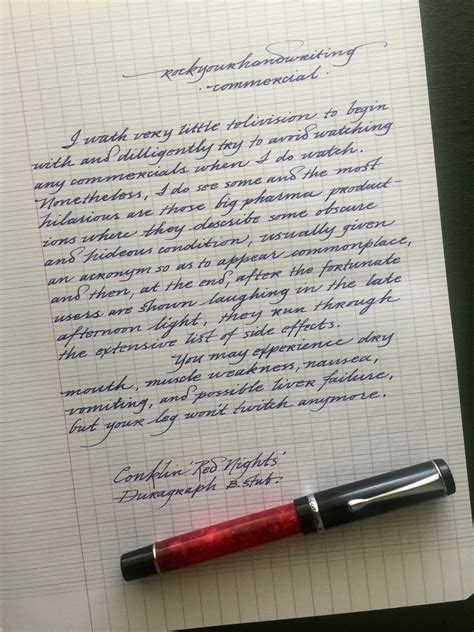 rockyourhandwriting
·commercial·
I wath very little telivision to begin
with and dilligently try to avoid watching
any commercials when I do watch.
Nonetheless, I do see some and the most
hilarious are those big pharma product-
ions where they describe some obscure
and hideous condition, usually given
an acronym so as to appear commonplace,
and then, at the end, after the fortunate
users are shown laughing in the late
afternoon light, they run through
the extensive list of side effects.
You may experience dry
mouth, muscle weakness, nausea,
vomiting, and possible liver failure,
but your leg won't twitch anymore.
Conklin 'Red Nights'
Duragraph B. stub.